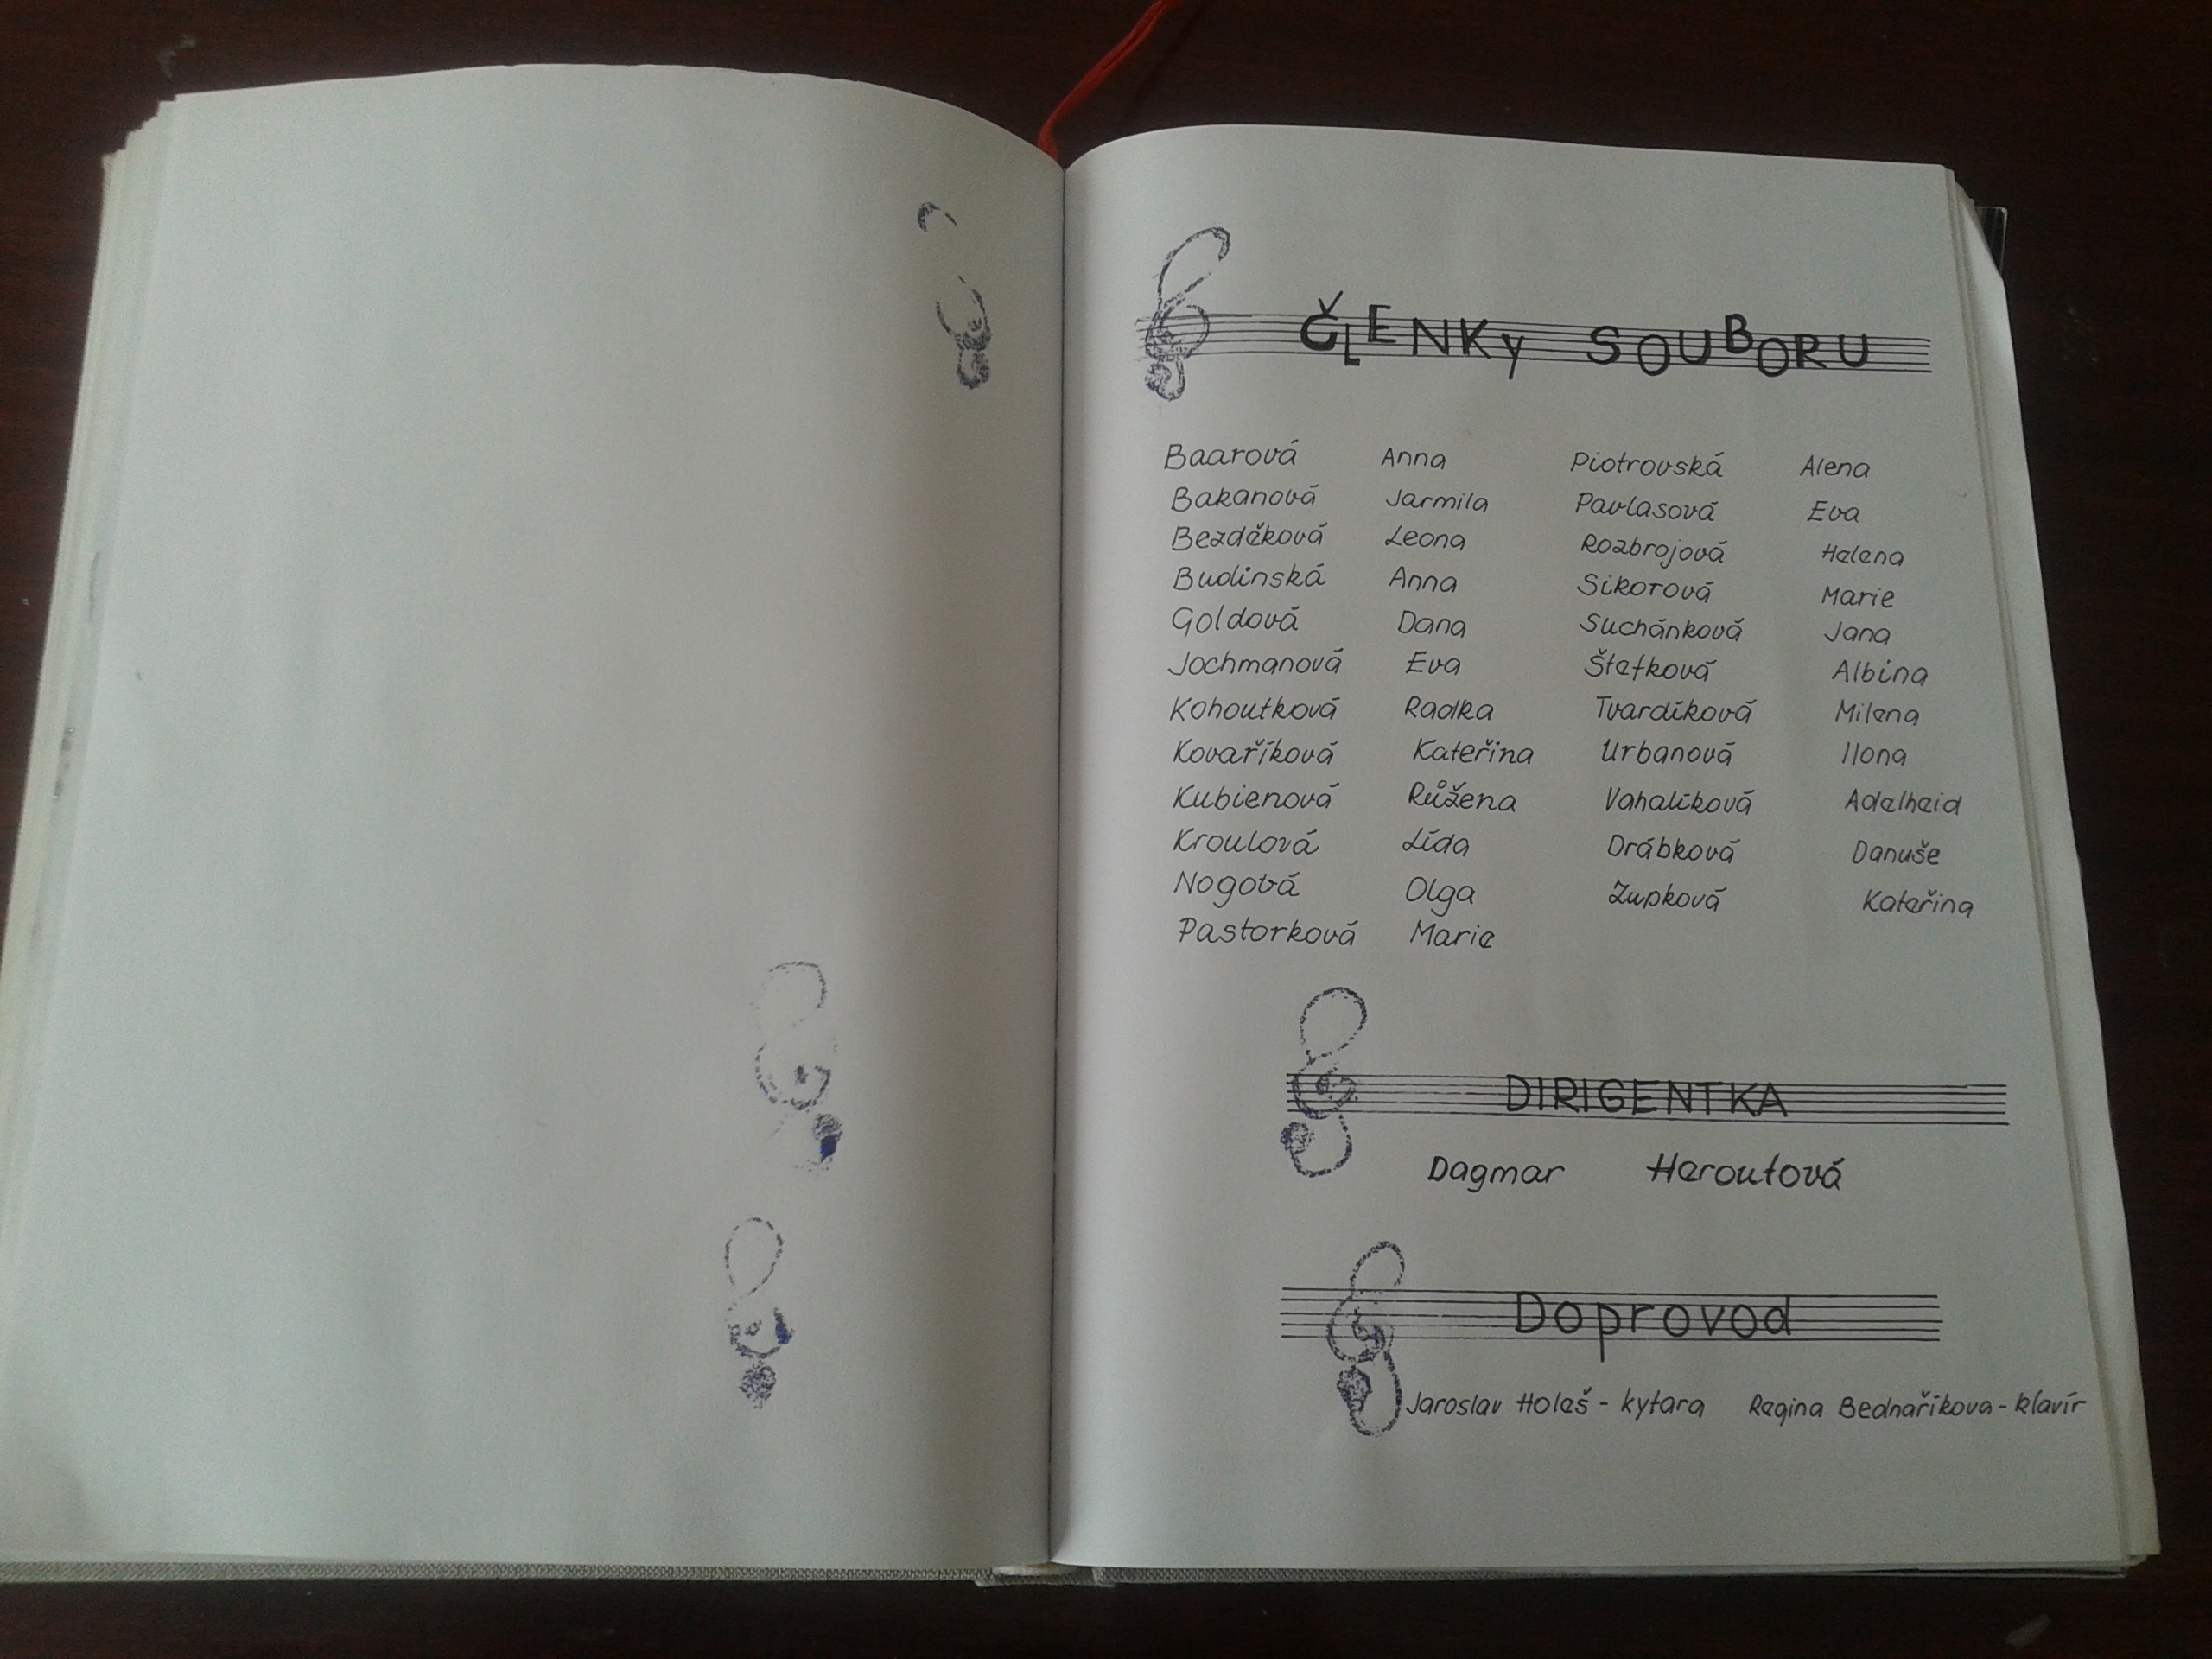 ČLENKY SOUBORU
Baarová Anna Piotrovská Alena
Bakanová Jarmila Pavlasová Eva
Bezděková Leona Rozbrojová Helena
Budinská Anna Sikorová Marie
Goldová Dana Suchánková Jana
Jochmanová Eva Štefková Albína
Kohoutková Radka Tvardíková Milena
Kovaříková Kateřina Urbanová Ilona
Kubienová Růžena Vahalíková Adelheid
Kroulová Lída Drábková Danuše
Nogová Olga Župková Kateřina
Pastorková Marie
DIRIGENTKA
Dagmar Heroutová
Doprovod
Jaroslav Holeš - kytara Regina Bednaříkova - klavír